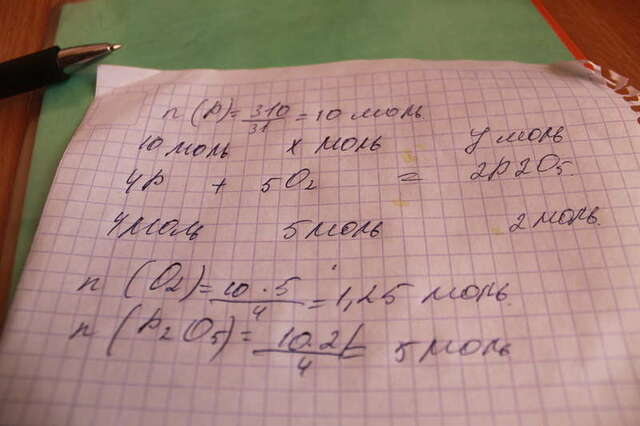 n (P) = 310/31 = 10 моль
10 моль х моль у моль
4P + 5O2 = 2P2O5.
4 моль 5 моль 2 моль.
n (O2) = 10 · 5/4 = 1,25 моль.
n (P2O5) = 10 · 2/4 = 5 моль